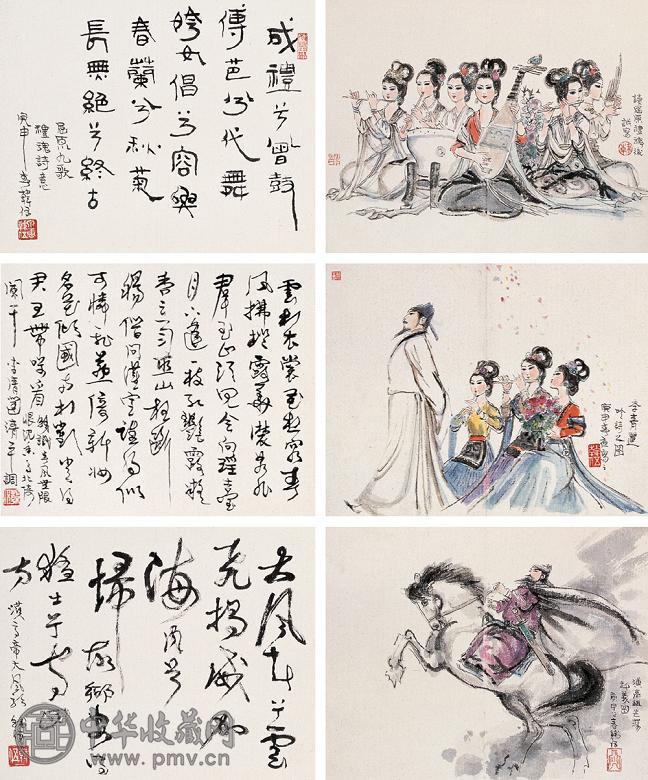 成禮兮會鼓
傳芭兮代舞
姱女倡兮容與
春蘭兮秋菊
長無絕兮終古
屈原九歌
禮魂詩意
庚申
讀屈原禮魂後
試寫
雲想衣裳花想容春
風拂檻露華濃若非
群玉山頭見會向瑤臺
月下逢一枝紅艷露凝
香雲雨巫山枉斷
腸借問漢宮誰得似
可憐飛燕倚新妝
名花傾國兩相歡常得
君王帶笑看解識春風無限
恨沈香亭北倚
闌干 李青蓮清平調
李青蓮
吟詩之圖
庚申
大風起兮雲
飛揚威加
海內兮
歸故鄉安得
猛士兮守四
方 漢高帝大風歌
漢高祖芒碭
起義圖
庚申
中华收藏网
www.pmv.cn